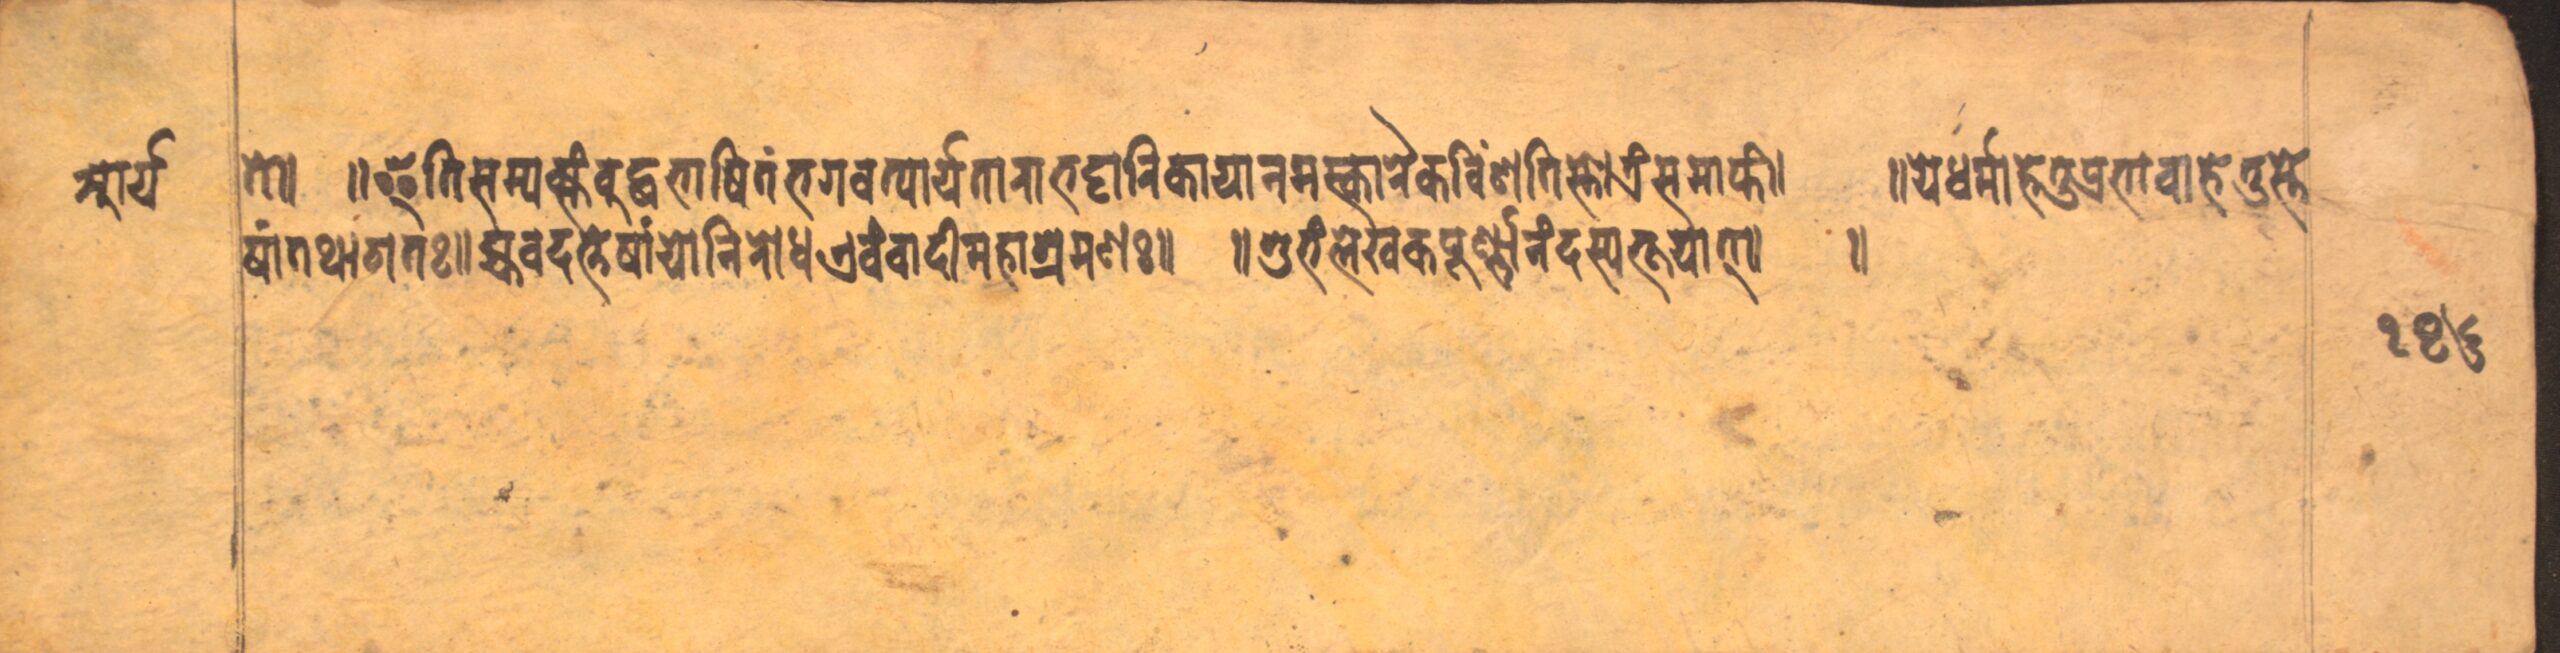 आर्य
ते॥ ॥इतिसम्यक्संबुद्धभाषितंभगवत्यार्यताराभट्टारिकायानमस्कारैकविंशतिस्तोत्रंसमाप्तं॥ ॥येधर्माहेतुप्रभवाहेतुस्ते
षांतथागतः॥ह्यवदत्तेषांयोनिरोधएवंवादीमहाश्रमणः॥ ॥शुभंलेखकपूर्ण्णानंदस्यभूयात्॥ ॥